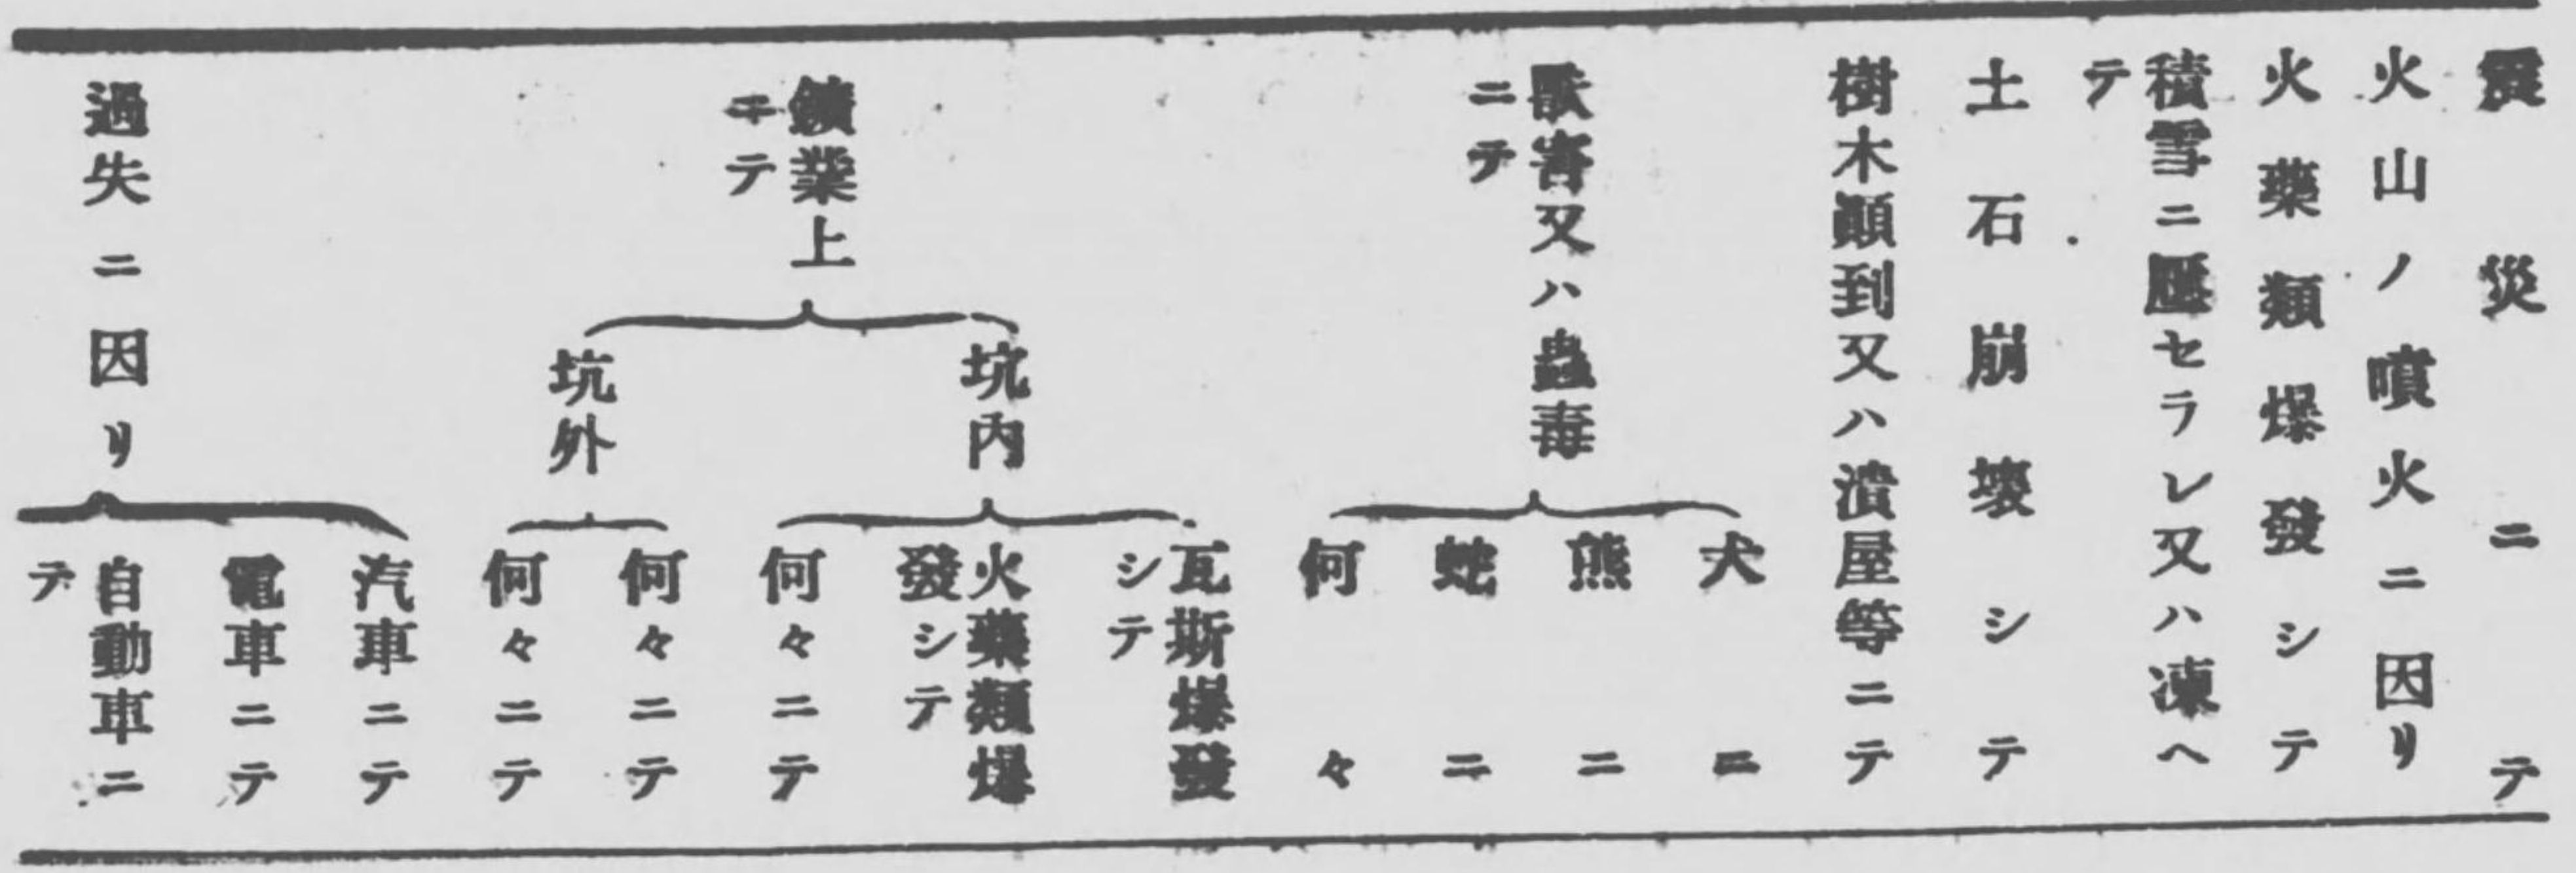 震災ニテ
火山ノ噴火ニ因リ
火藥類爆發シテ
積雪ニ壓セラレ又ハ凍ヘ
テ
土石崩壞シテ
樹木顚到又ハ潰屋等ニテ
獸害又ハ蟲毒
ニテ
犬ニ
熊ニ
蛇ニ
何々
鑛業上
ニテ
坑內
瓦斯爆發
シテ
火藥類爆
發シテ
何々ニテ
坑外
何々ニテ
何々ニテ
過失ニ因リ
汽車ニテ
電車ニテ
自動車ニ
テ